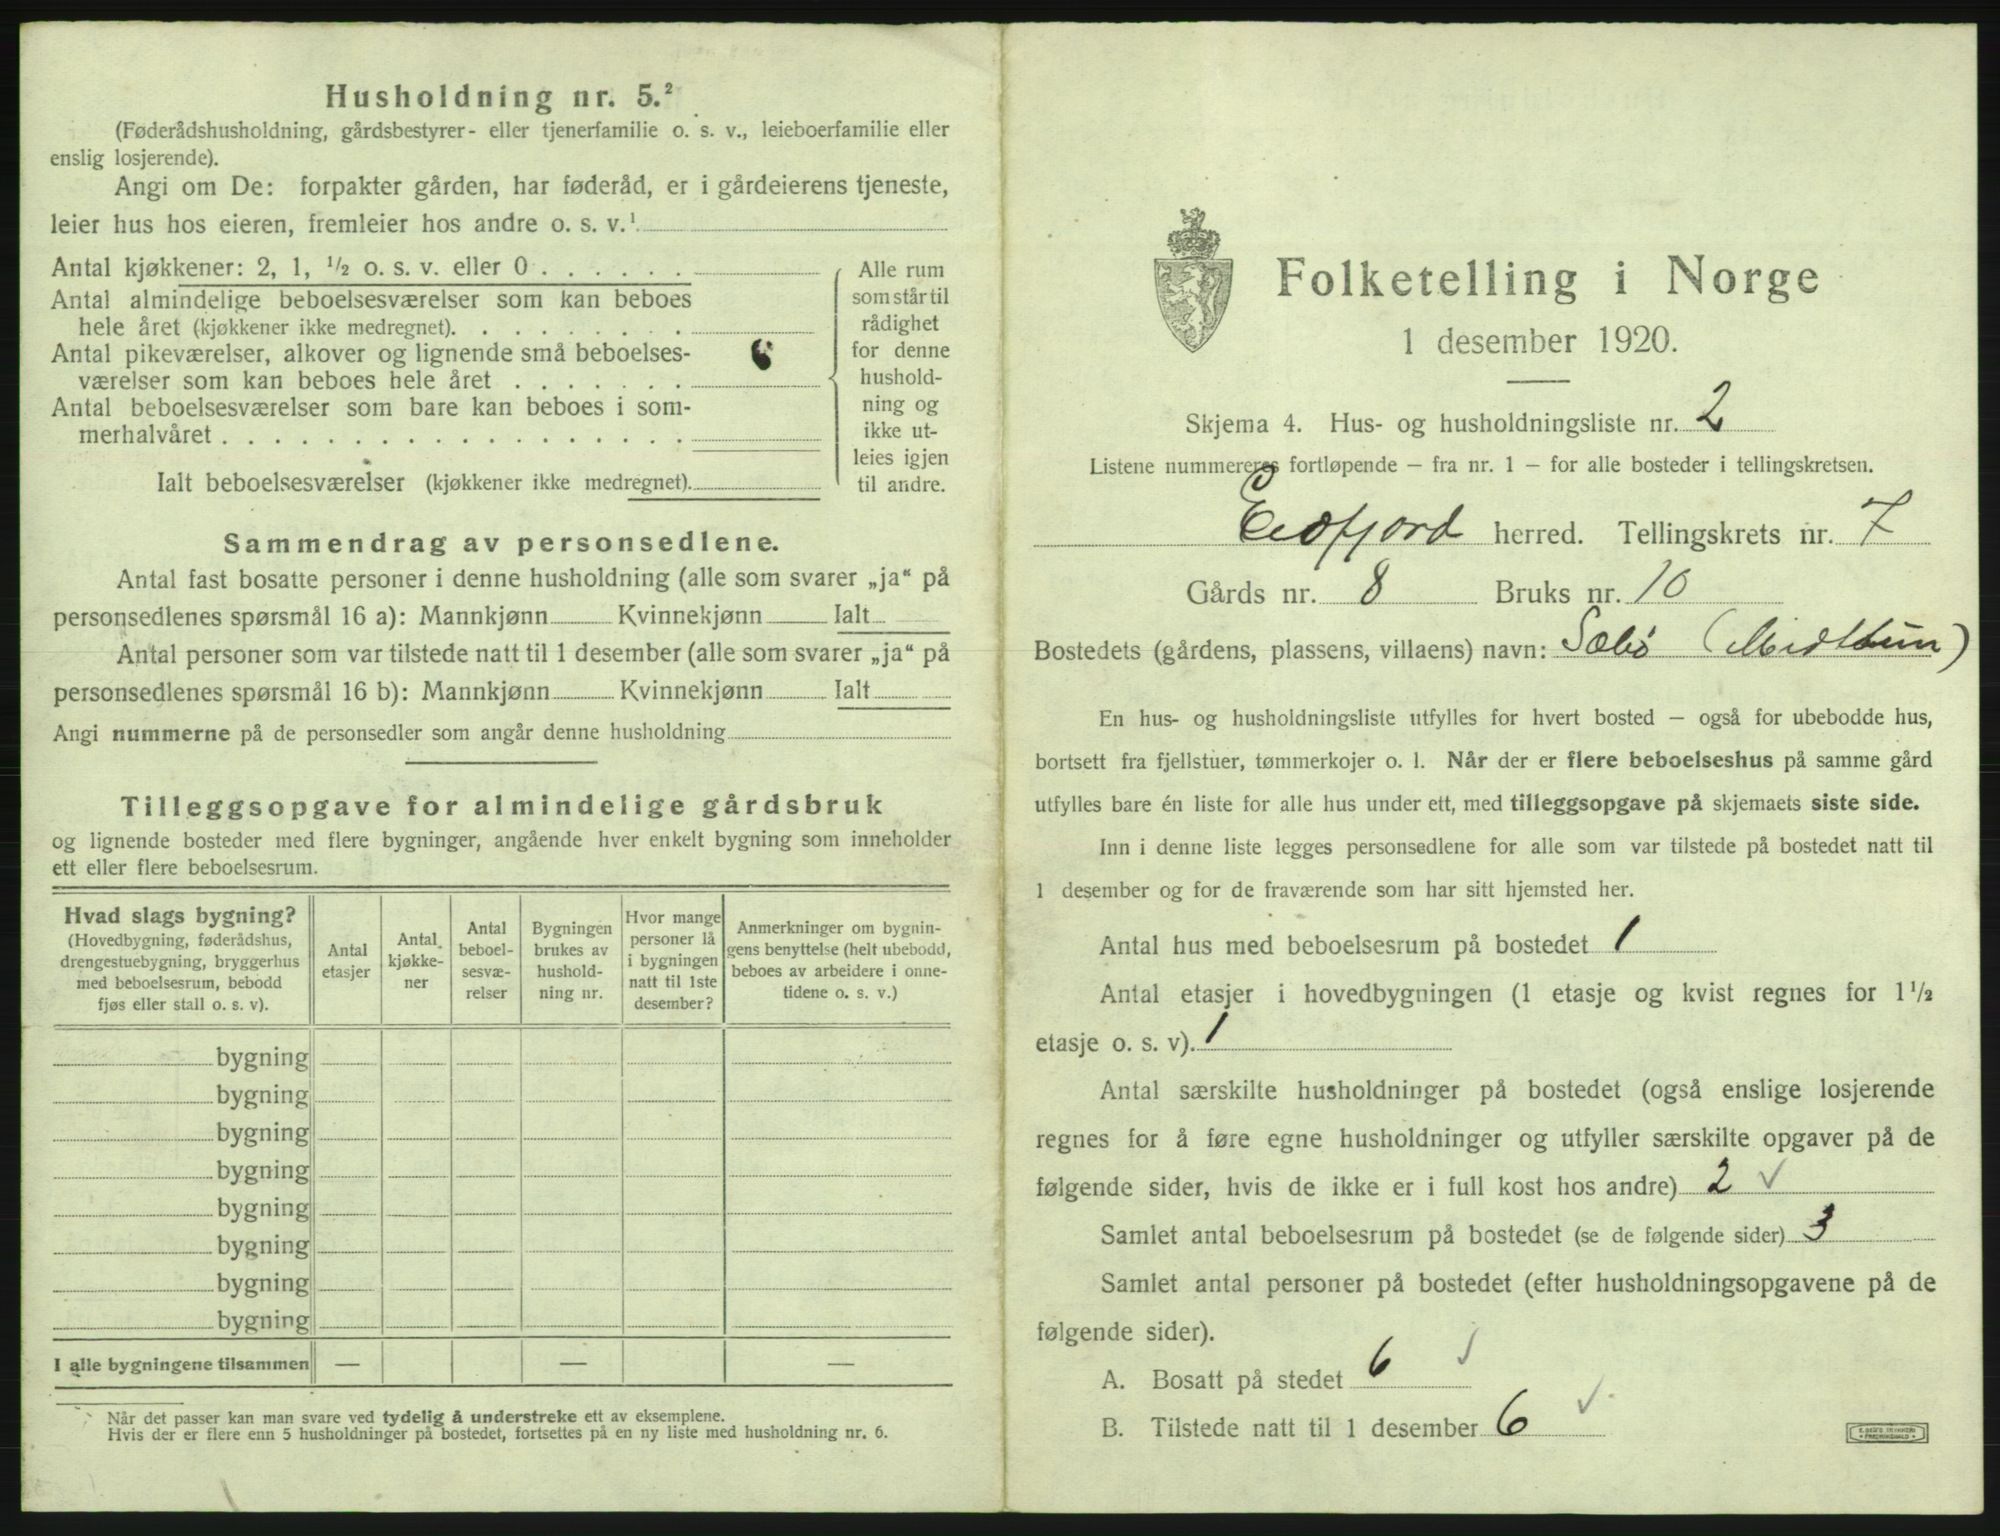 Husholdning nr. 5.²
(Føderådshusholdning, gårdsbestyrer- eller tjenerfamilie o. s. v., leieboerfamilie eller
enslig losjerende).
Angi om De: forpakter gården, har føderåd, er i gårdeierens tjeneste,
leier hus hos eieren, fremleier hos andre o. s. v.¹
Antal kjøkkener: 2, 1, ½ o. s. v. eller 0 . . . . . .
Antal almindelige beboelsesværelser som kan beboes
hele året (kjøkkener ikke medregnet). . . . . . . . .
Antal pikeværelser, alkover og lignende små beboelses-
værelser som kan beboes hele året . . . . . . .
Antal beboelsesværelser som bare kan beboes i som-
merhalvåret . . . . . . . . . . . . . . . . . .
Ialt beboelsesværelser (kjøkkener ikke medregnet).
6
Alle rum
som står til
rådighet
for denne
hushold-
ning og
ikke ut-
leies igjen
til andre.
Sammendrag av personsedlene.
Antal fast bosatte personer i denne husholdning (alle som svarer „ja“ på
personsedlenes spørsmål 16 a): Mannkjønn Kvinnekjønn Ialt
Antal personer som var tilstede natt til 1 desember (alle som svarer „ja“ på
personsedlenes spørsmål 16 b): Mannkjønn Kvinnekjønn Ialt
Angi nummerne på de personsedler som angår denne husholdning
Tilleggsopgave for almindelige gårdsbruk
og lignende bosteder med flere bygninger, angående hver enkelt bygning som inneholder
ett eller flere beboelsesrum.
Hvad slags bygning?
(Hovedbygning, føderådshus,
drengestuebygning, bryggerhus
med beboelsesrum, bebodd
fjøs eller stall o. s. v).
Antal
etasjer
Antal
kjøkke-
ner
Antal
beboel-
sesvæ-
relser
Bygningen
brukes av
hushold-
ning nr.
Hvor mange
personer lå
i bygningen
natt til 1ste
desember?
Anmerkninger om bygnin-
gens benyttelse (helt ubebodd,
beboes av arbeidere i onne-
tidene o. s. v.)
bygning
bygning
bygning
bygning
bygning
bygning
bygning
bygning
I alle bygningene tilsammen — — —
Når det passer kan man svare ved tydelig å understreke ett av eksemplene.
Hvis der er flere enn 5 husholdninger på bostedet, fortsettes på en ny liste med husholdning nr. 6.
Folketelling i Norge
1 desember 1920.
Skjema 4. Hus- og husholdningsliste nr. 2
Listene nummereres fortløpende – fra nr. 1 – for alle bosteder i tellingskretsen.
Eidfjord herred. Tellingskrets nr. 7
Gårds nr. 8 Bruks nr. 10
Bostedets (gårdens, plassens, villaens) navn: Sæbö (Midttun)
En hus- og husholdningsliste utfylles for hvert bosted – også for ubebodde hus,
bortsett fra fjellstuer, tømmerkojer o. l. Når der er flere beboelseshus på samme gård
utfylles bare én liste for alle hus under ett, med tilleggsopgave på skjemaets siste side.
Inn i denne liste legges personsedlene for alle som var tilstede på bostedet natt til
1 desember og for de fraværende som har sitt hjemsted her.
Antal hus med beboelsesrum på bostedet 1
Antal etasjer i hovedbygningen (1 etasje og kvist regnes for 1½
etasje o. s. v). 1
Antal særskilte husholdninger på bostedet (også enslige losjerende
regnes for å føre egne husholdninger og utfyller særskilte opgaver på de
følgende sider, hvis de ikke er i full kost hos andre) 2 ✓
Samlet antal beboelsesrum på bostedet (se de følgende sider) 3
Samlet antal personer på bostedet (efter husholdningsopgavene på de
følgende sider).
A. Bosatt på stedet 6 ✓
B. Tilstede natt til 1 desember 6 ✓